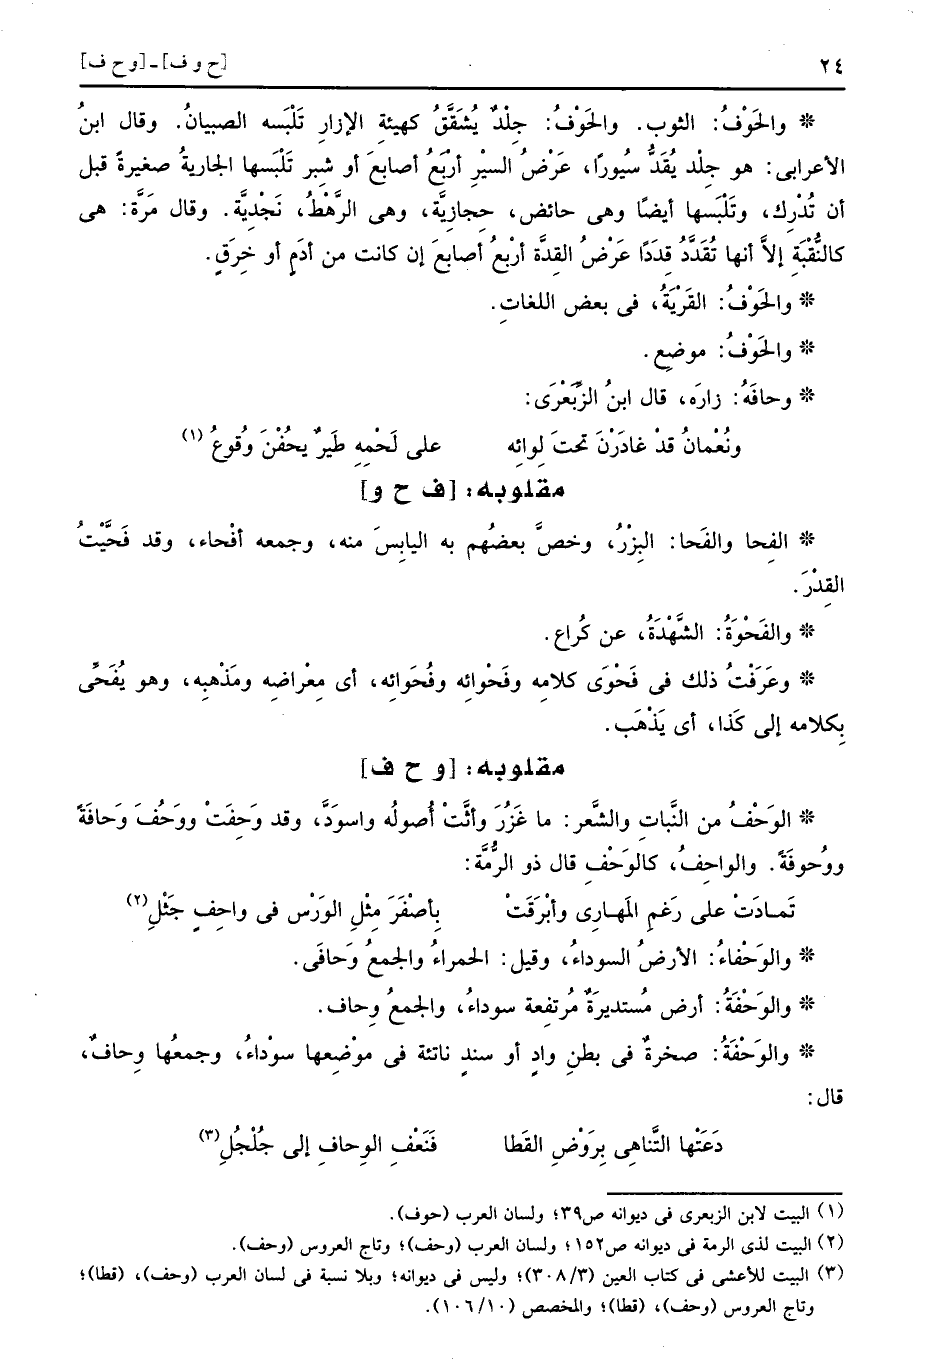 ٢٤ [ح و ف] ـ [و ح ف]
* والحَوْفُ: الثوب. والحَوْفُ: جِلْدٌ يُشَقَّقُ كهيئة الإزار تَلْبَسه الصبيانُ. وقال ابنُ
الأعرابى: هو جِلْد يُقَدُّ سُيورًا، عَرْضُ السيْرِ أرْبَعُ أصابعَ أو شبر تَلْبَسها الجاريةُ صغيرةً قبل
أن تُدْرِك، وتَلْبَسها أيضًا وهى حائض، حِجازيَّة، وهى الرَّهْطُ، نَجْديَّة. وقال مَرَّة: هى
كالنُّقْبَةِ إلاَّ أنها تُقَدَّدُ قِدَدًا عَرْضُ القِدَّة أرْبعُ أصابعَ إن كانت من أدَمٍ أو خِرَقٍ.
* والحَوْفُ: القَرْيَةُ، فى بعض اللغاتِ.
* والحَوْفُ: موضِع.
* وحافَهُ: زارَه، قال ابنُ الزِّبَعْرَى:
ونُعْمانُ قدْ غادَرْنَ تحتَ لِوائِه على لَحْمِهِ طَيرٌ يحفُفْنَ وُقوعُ(١)
مقلوبه: [ف ح و]
* الفِحا والفَحا: البِزْرُ، وخصَّ بعضُهم به اليابِسَ منه، وجمعه أفْحاء، وقد فَحَّيْتُ
القِدْرَ.
* والفَحْوَةُ: الشَّهْدَةُ، عن كُراع.
* وعَرَفْتُ ذلك فى فَحْوَى كلامِه وفَحْوائِه وفُحَوائِه، أى مِعْراضِه ومَذْهبِه، وهو يُفَحِّى
بِكلامه إلى كَذا، أى يَذْهَب.
مقلوبه: [و ح ف]
* الوَحْفُ من النَّباتِ والشَّعر: ما غَزُرَ وأثَّتْ أُصولُه واسودَّ، وقد وَحِفَتْ ووَحُفَ وَحافَةً
ووُحوفَةً. والواحِفُ، كالوَحْفِ قال ذو الرُّمَّة:
تَمادَتْ على رَغمِ المَهارى وأبْرَقَتْ بأصْفَرَ مِثْلِ الوَرْس فى واحِفٍ جَثْلِ(٢)
* والوَحْفاءُ: الأرضُ السوداءُ، وقيل: الحمراءُ والجمعُ وَحافَى.
* والوَحْفَةُ: أرض مُستديرَةٌ مُرتفعة سوداءُ، والجمعُ وِحاف.
* والوَحْفَةُ: صخرةٌ فى بطنِ وادٍ أو سندٍ ناتئة فى موْضِعِها سوْداءُ، وجمعُها وِحافٌ،
قال:
دَعَتْها التَّناهِى بِرَوْضِ القَطا فَنَعْف الوِحافِ إلى جُلْجُلِ(٣)
(١) البيت لابن الزبعرى فى ديوانه ص٣٩؛ ولسان العرب (حوف).
(٢) البيت لذى الرمة فى ديوانه ص١٥٢؛ ولسان العرب (وحف)؛ وتاج العروس (وحف).
(٣) البيت للأعشى فى كتاب العين (٣٠٨/٣)؛ وليس فى ديوانه؛ وبلا نسبة فى لسان العرب (وحف)، (قطا)؛
وتاج العروس (وحف)، (قطا)؛ والمخصص (١٠٦/١٠).